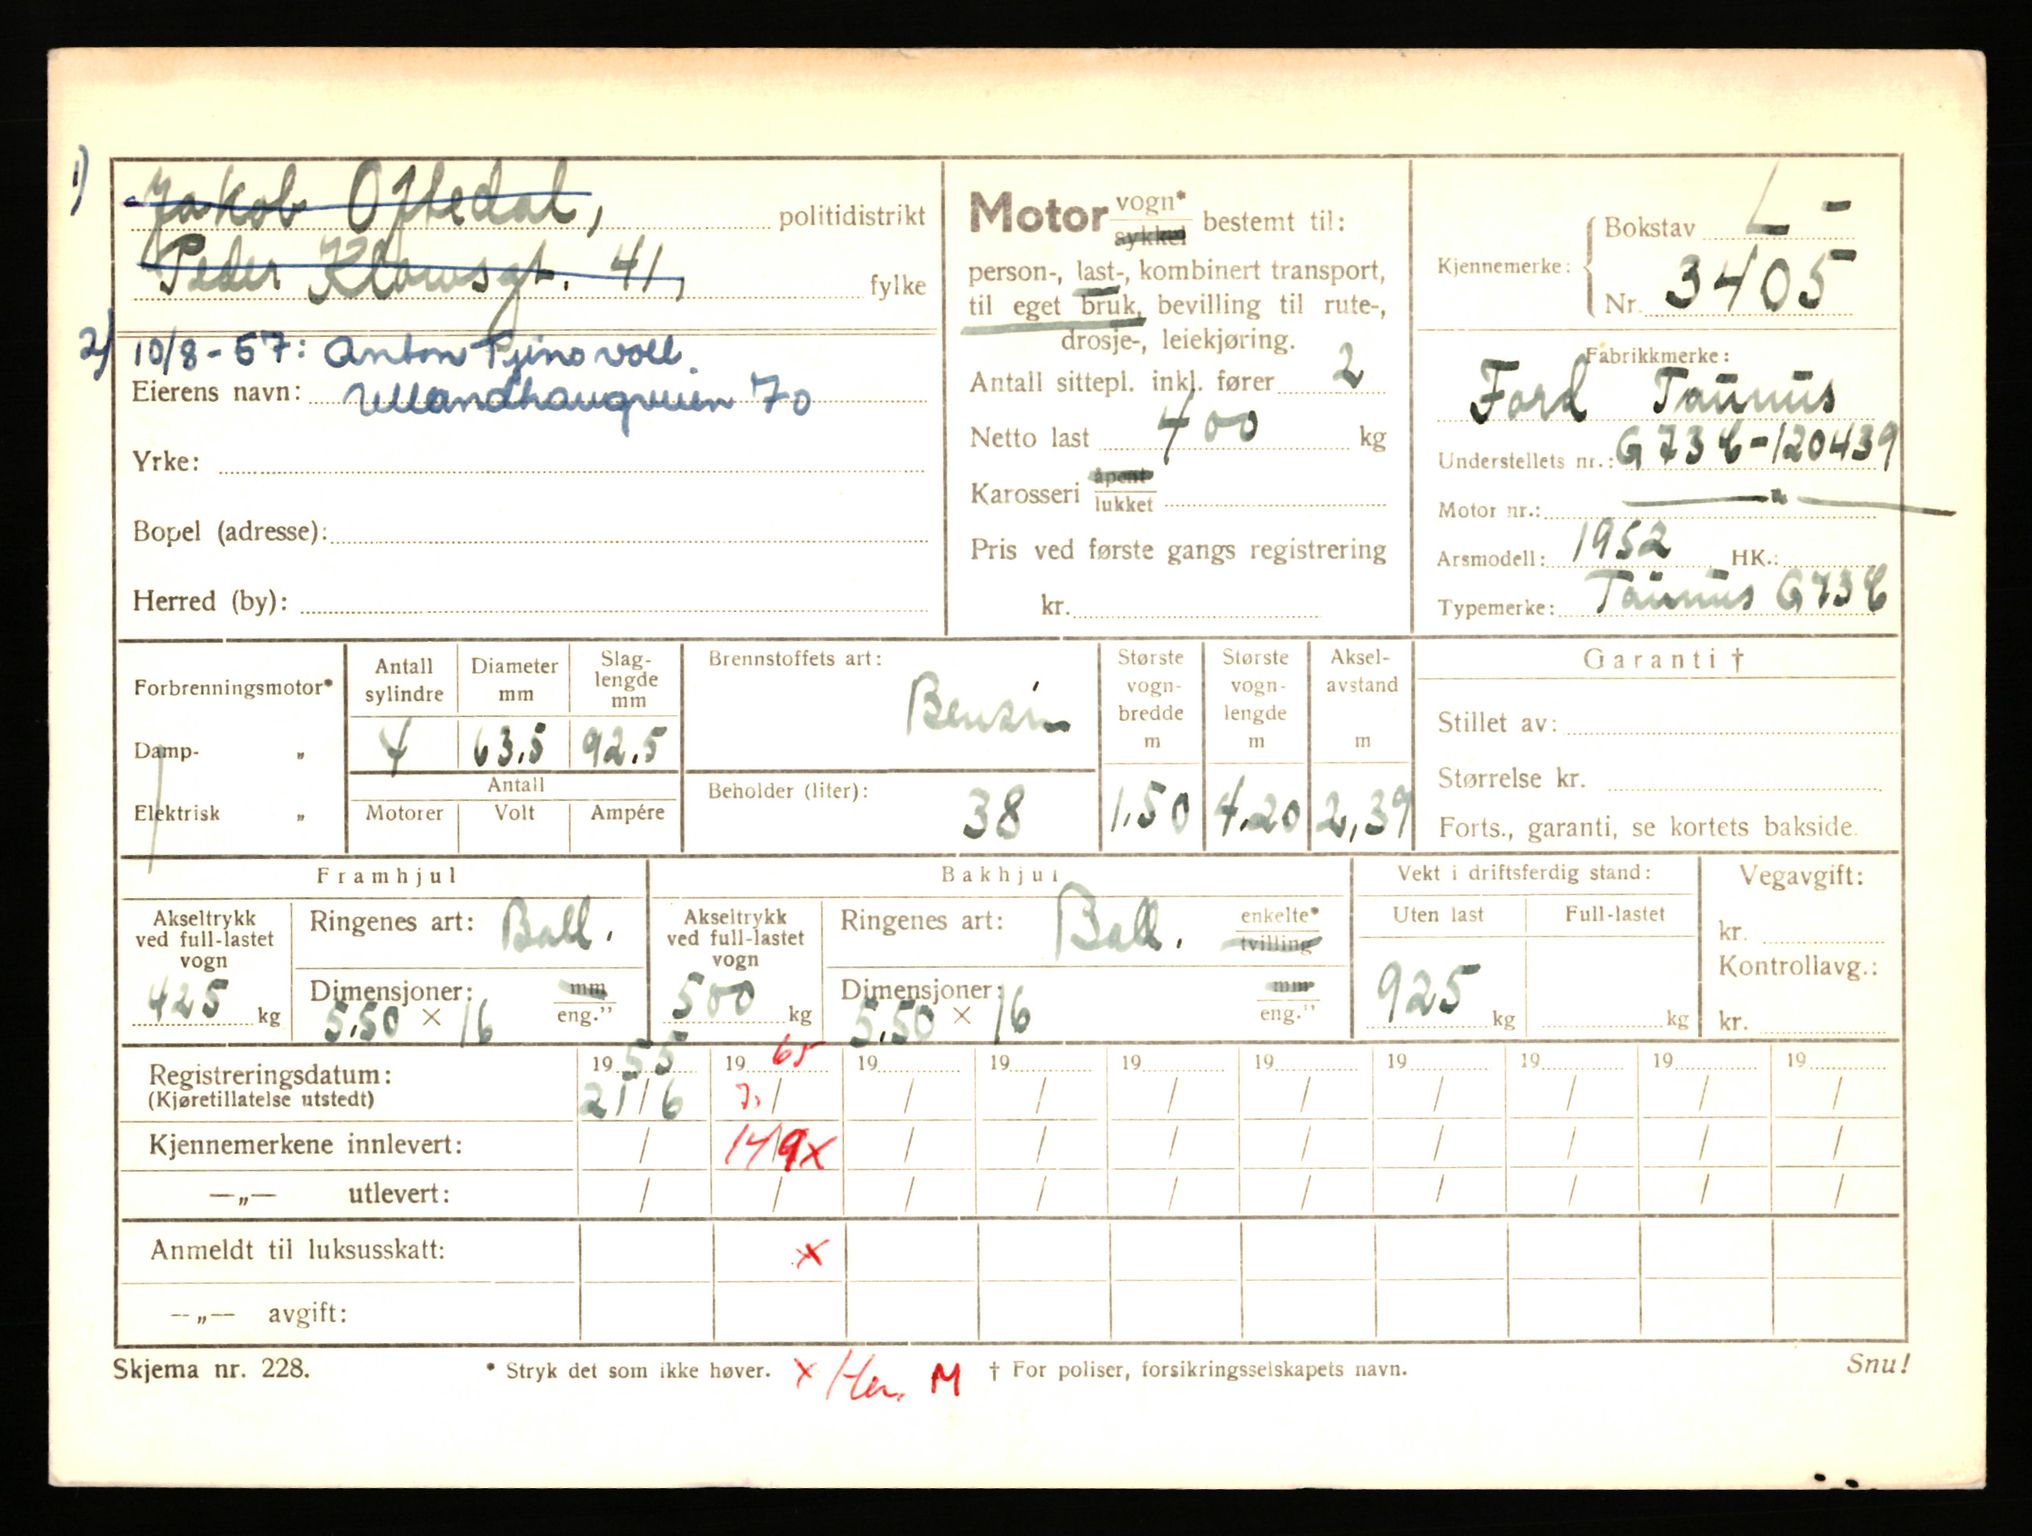 1) Jakob Oftedal, politidistrikt
Peder Klowsgt. 41, fylke
2) 10/8-57: Anton Tjinovoll.
Eierens navn: Ullandhaugveien 70
Yrke:
Bopel (adresse):
Herred (by):
Motor vogn* sykkel bestemt til:
person-, last-, kombinert transport,
til eget bruk, bevilling til rute-,
drosje-, leiekjøring.
Antall sittepl. inkl. fører 2
Netto last 400 kg
Karosseri åpent lukket
Pris ved første gangs registrering
kr.
Kjennemerke: Bokstav L-
Nr. 3405
Fabrikkmerke:
Ford Taunus
Understellets nr.: G73C-120439
Motor nr.: — " —
Arsmodell: 1952 HK.:
Typemerke: Taunus G73C
Forbrenningsmotor*
Damp- „
Elektrisk „
Antall sylindre
4
Diameter mm
63.5
Slag-lengde mm
92.5
Antall
Motorer Volt Ampére
Brennstoffets art:
Bensin
Beholder (liter):
38
Største vogn-bredde m
1.50
Største vogn-lengde m
4.20
Aksel-avstand m
2,39
Garanti †
Stillet av:
Størrelse kr.
Forts., garanti, se kortets bakside.
Framhjul
Akseltrykk
ved full-lastet
vogn
425 kg
Ringenes art: Ball.
Dimensjoner: mm
5.50 × 16 eng."
Bakhjul
Akseltrykk
ved full-lastet
vogn
500 kg
Ringenes art: Ball. enkelte* tvilling
Dimensjoner: mm
5.50 × 16 eng."
Vekt i driftsferdig stand:
Uten last Full-lastet
925 kg kg
Vegavgift:
kr.
Kontrollavg.:
kr.
Registreringsdatum: 19 55 19 65 19 19 19 19 19 19 19 19
(Kjøretillatelse utstedt) 21/6 7. / / / / / / / / /
Kjennemerkene innlevert: / 14/9 x / / / / / / / /
—„— utlevert: / / / / / / / / / /
Anmeldt til luksusskatt: x
—„— avgift:
Skjema nr. 228. * Stryk det som ikke høver. x Hen. M † For poliser, forsikringsselskapets navn. Snu!